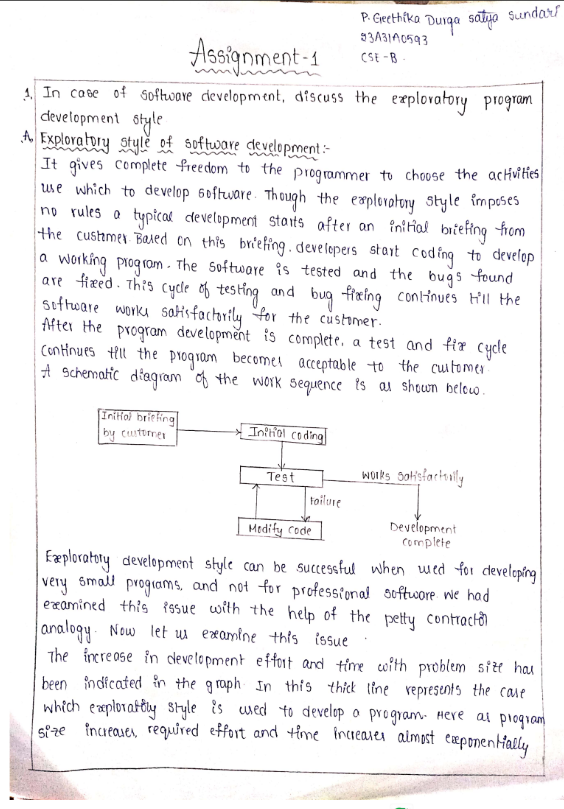 P. Geethika Durga satya Sundari
93A31A0593
CSE-B.
Assignment-1
1. In case of software development, discuss the exploratory program
development style
A. Exploratory style of software development:-
It gives complete freedom to the programmer to choose the activities
use which to develop software. Though the exploratory style imposes
no rules a typical development starts after an initial briefing from
the customer. Based on this briefing, developers start coding to develop
a working program. The software is tested and the bugs found
are fixed. This cycle of testing and bug fixing continues till the
software works satisfactorily for the customer.
After the program development is complete, a test and fix cycle
continues till the program becomes acceptable to the customer.
A schematic diagram of the work sequence is as shown below.
Initial briefing
by customer
Initial coding
Test
works satisfactorily
failure
Modify code
Development
complete
Exploratory development style can be successful when used for developing
very small programs, and not for professional software we had
examined this issue with the help of the petty contractor
analogy. Now let us examine this issue
The increase in development effort and time with problem size has
been indicated in the graph. In this thick line represents the case
which exploratory style is used to develop a program. Here as program
size increases, required effort and time increases almost exponentially